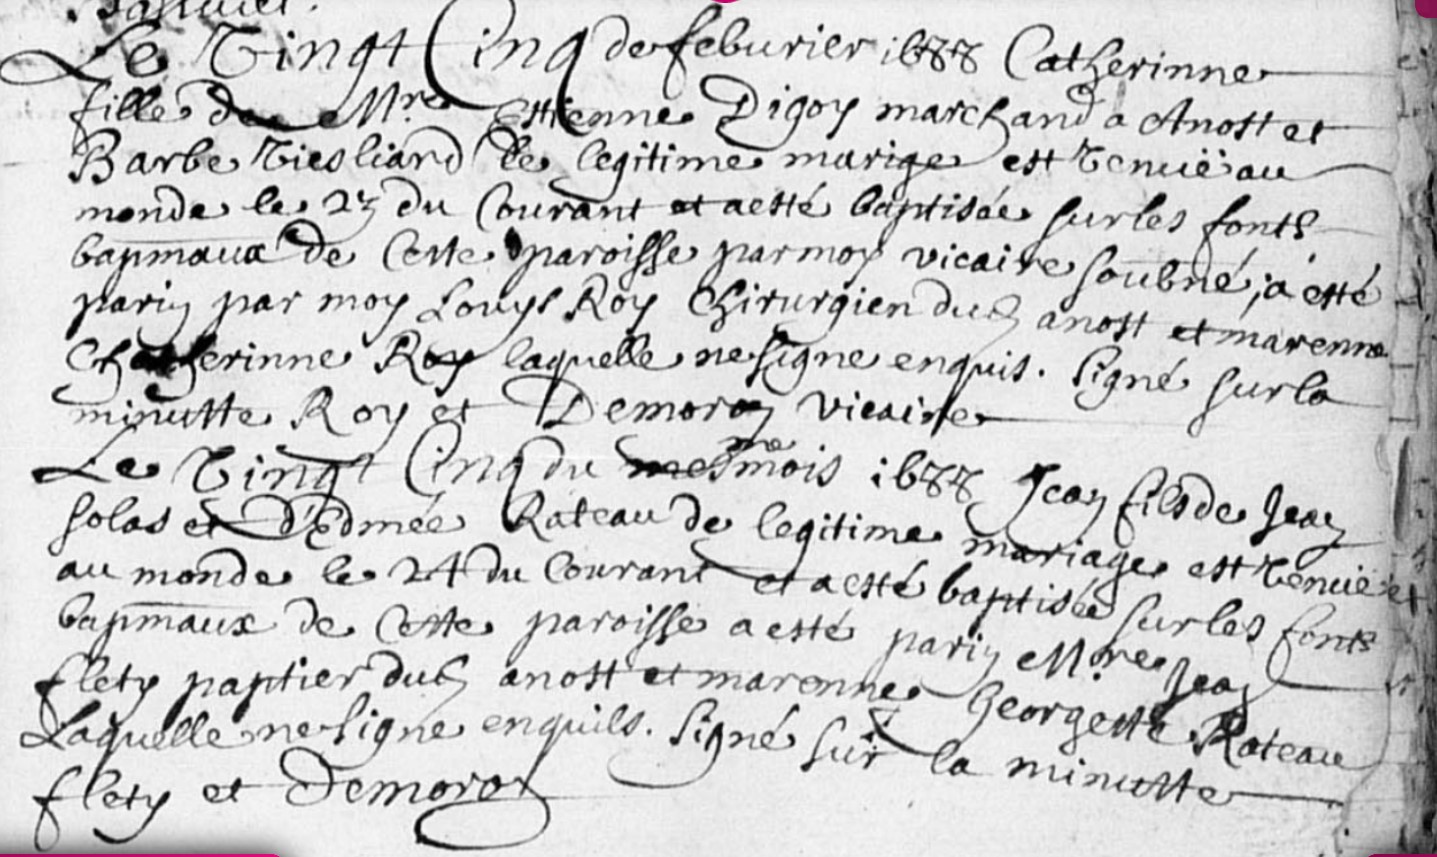 Le Vingt Cinq de feburier 1688 Catherinne
fille de Mre Estienne Digoy marchand a Anost et
Barbe de legitime marige est venuë au
monde le 23 du Courant et a esté baptisée sur les fonts
bapmaux de Cette paroisse par moy vicaire soubné, a esté
parin par moy Louys Roy Chirurgien dud anost et marenne
Chatherinne Roy laquelle ne signe enquis. Signé sur la
minutte Roy et Demoroy vicaire
Le Vingt Cinq du mesme mois 1688 Jean fils de Jean
Solas et d'Edmée Rateau de legitime mariage est venuë et
au monde le 24 du Courant et a esté baptisée sur les fonts
bapmaux de Cette paroisse a esté parin Mre Jean
flety dud anost et marenne Georgette Rateau
Laquelle ne signe enquils. Signé sur la minutte
flety et Demoroy